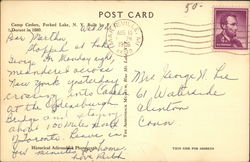 50-
Camp Cedars, Forked Lake, N. Y. Built by
Durant in 1880.
POST CARD
Wed A.M.
Dear Martha
Stopped at Lake
George on Monday night,
meandered across
New York yesterday
crossing into Canada
at the Ogdensburg
Bridge and staying
about 100 miles North
of Toronto. Leave in
few minutes for home.
Love Ruth
Mrs George H. Lee
61 Waterside
Clinton
Conn.
Historical Adirondack Photograph
THIS SIDE FOR ADDRESS